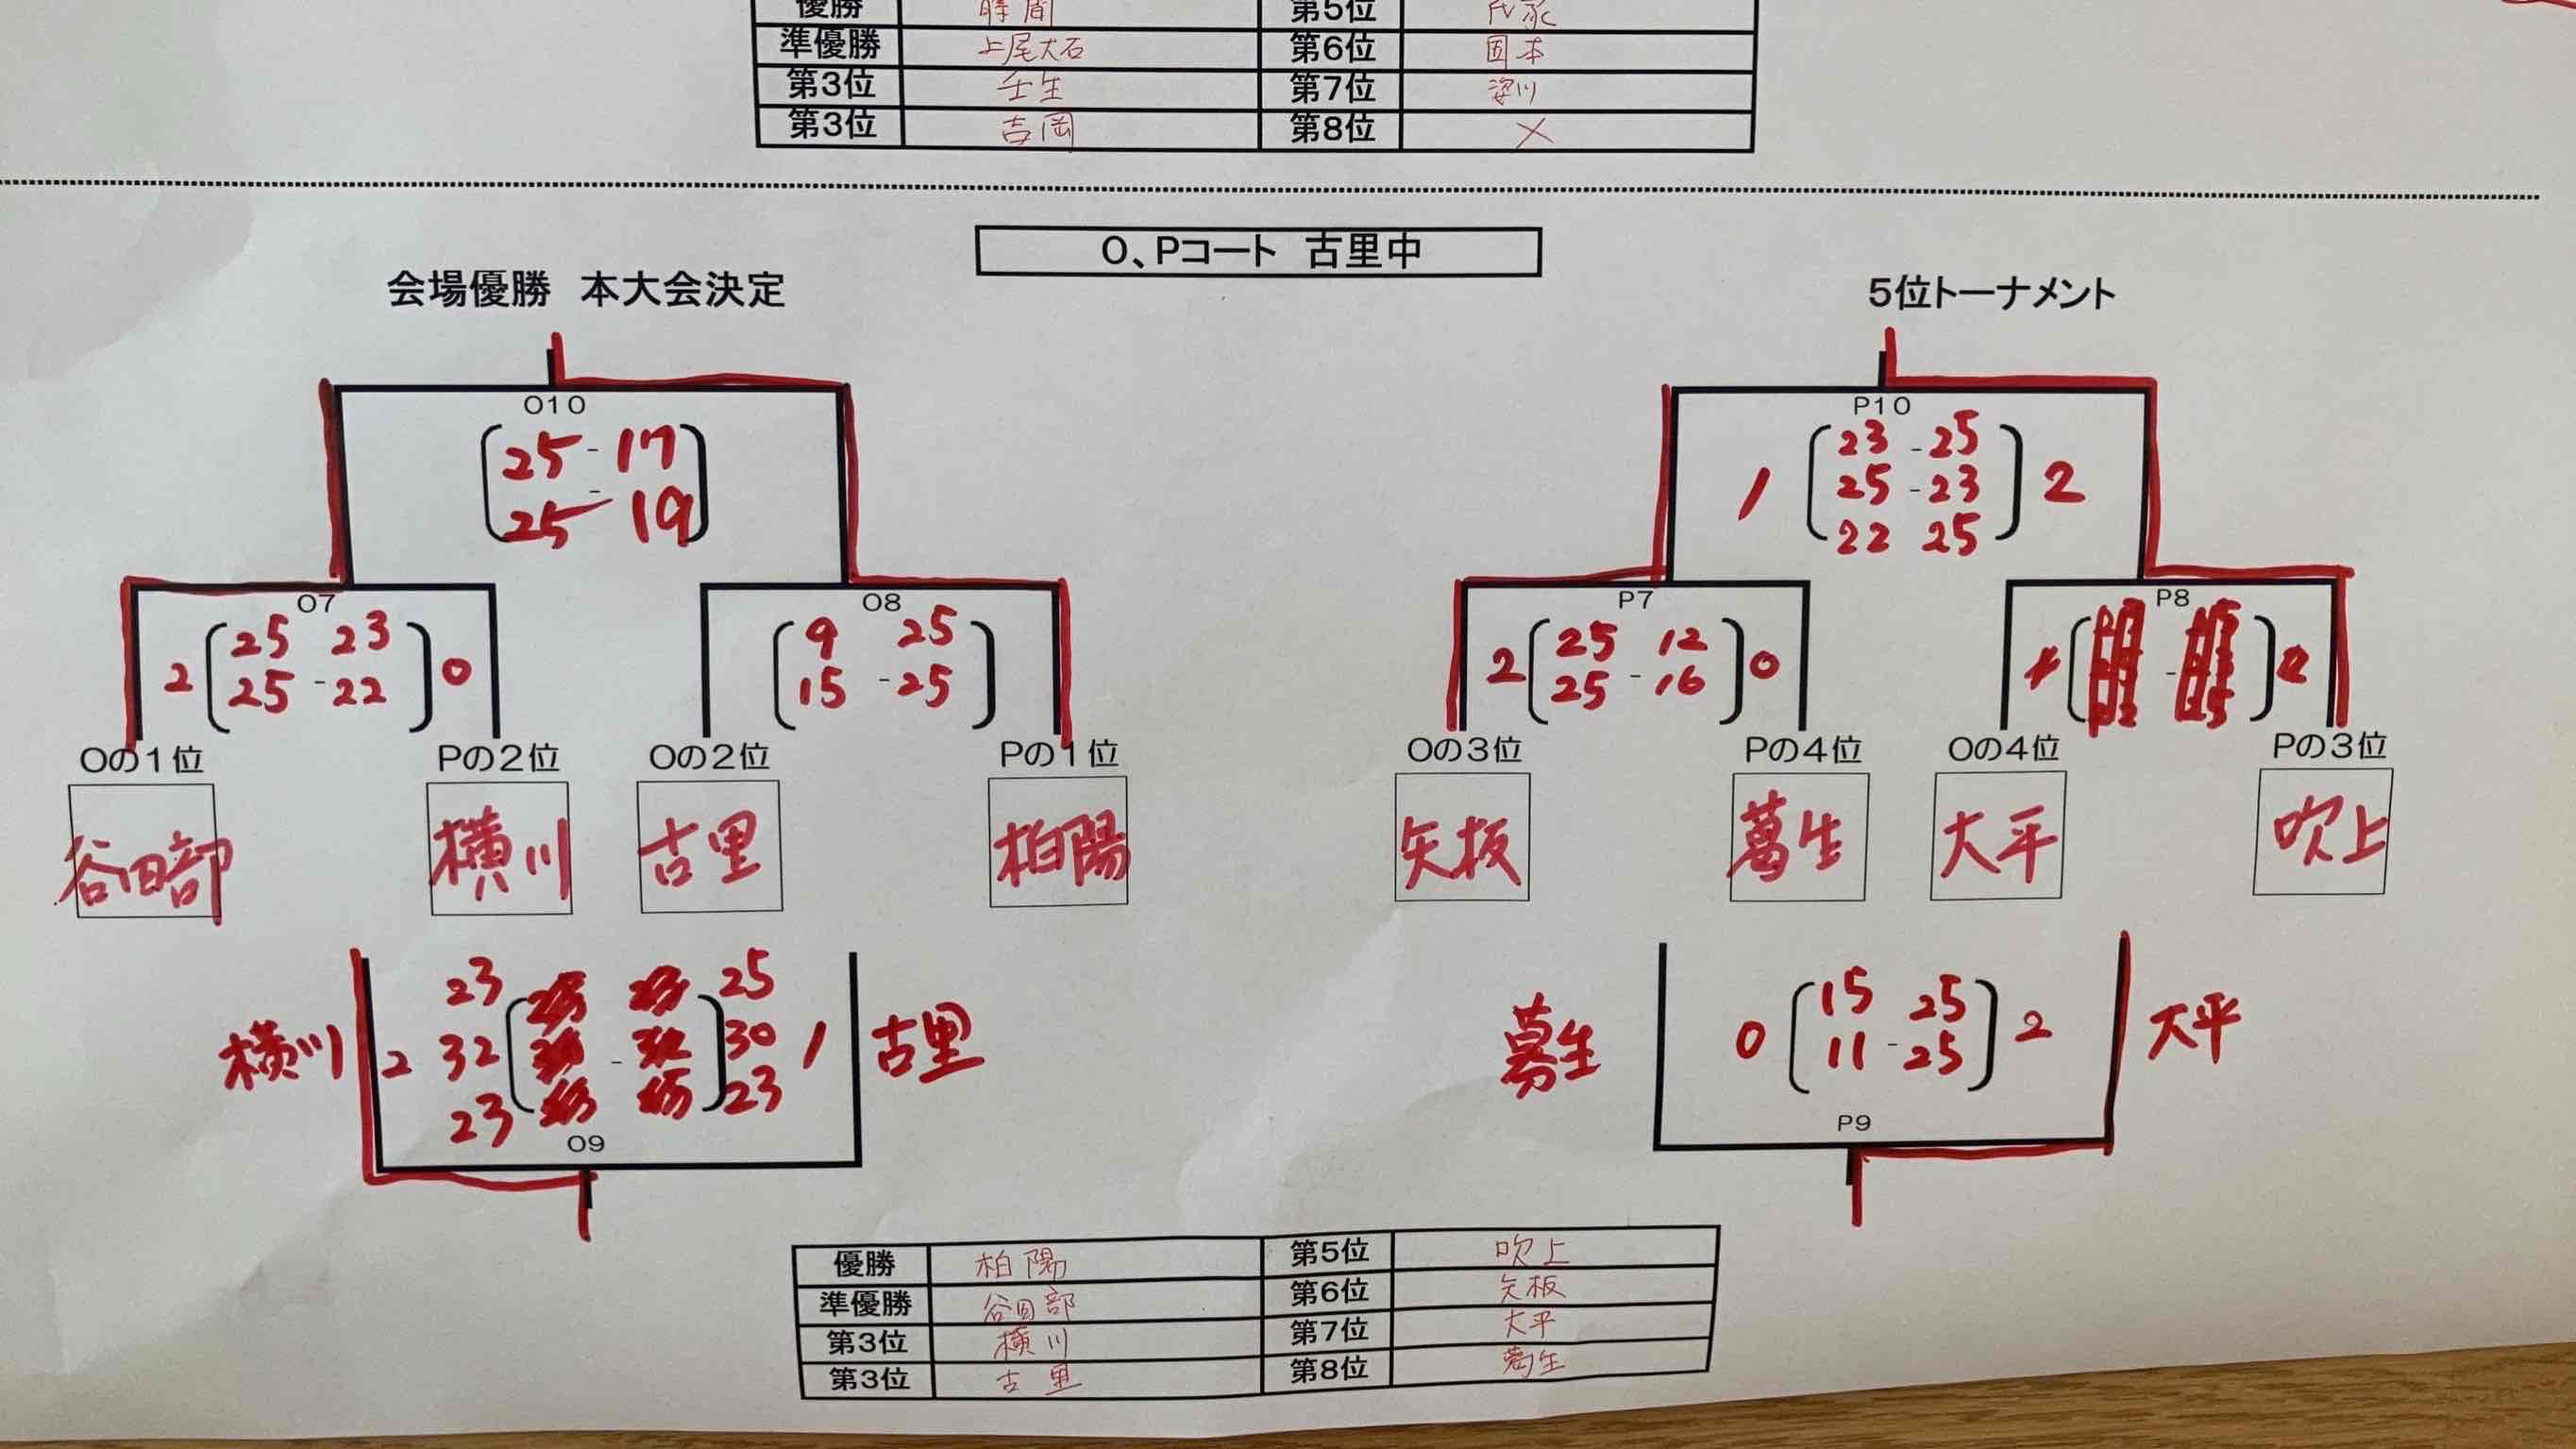 優勝 第5位 氏家
準優勝 上尾大石 第6位 国本
第3位 壬生 第7位 姿川
第3位 吉岡 第8位 ×
O、Pコート 古里中
会場優勝 本大会決定
5位トーナメント
O10
25 - 17
25 - 19
P10
23 - 25
1 25 - 23 2
22 25
O7
25 23
2 25 - 22 0
O8
9 25
15 - 25
P7
25 12
2 25 - 16 0
P8
Oの1位 Pの2位 Oの2位 Pの1位
Oの3位 Pの4位 Oの4位 Pの3位
谷田部 横川 古里 柏陽
矢板 葛生 大平 吹上
23 25
横川 2 32 - 30 1 古里
23 23
O9
15 25
葛生 0 11 - 25 2 大平
P9
優勝 柏陽 第5位 吹上
準優勝 谷田部 第6位 矢板
第3位 横川 第7位 大平
第3位 古里 第8位 葛生